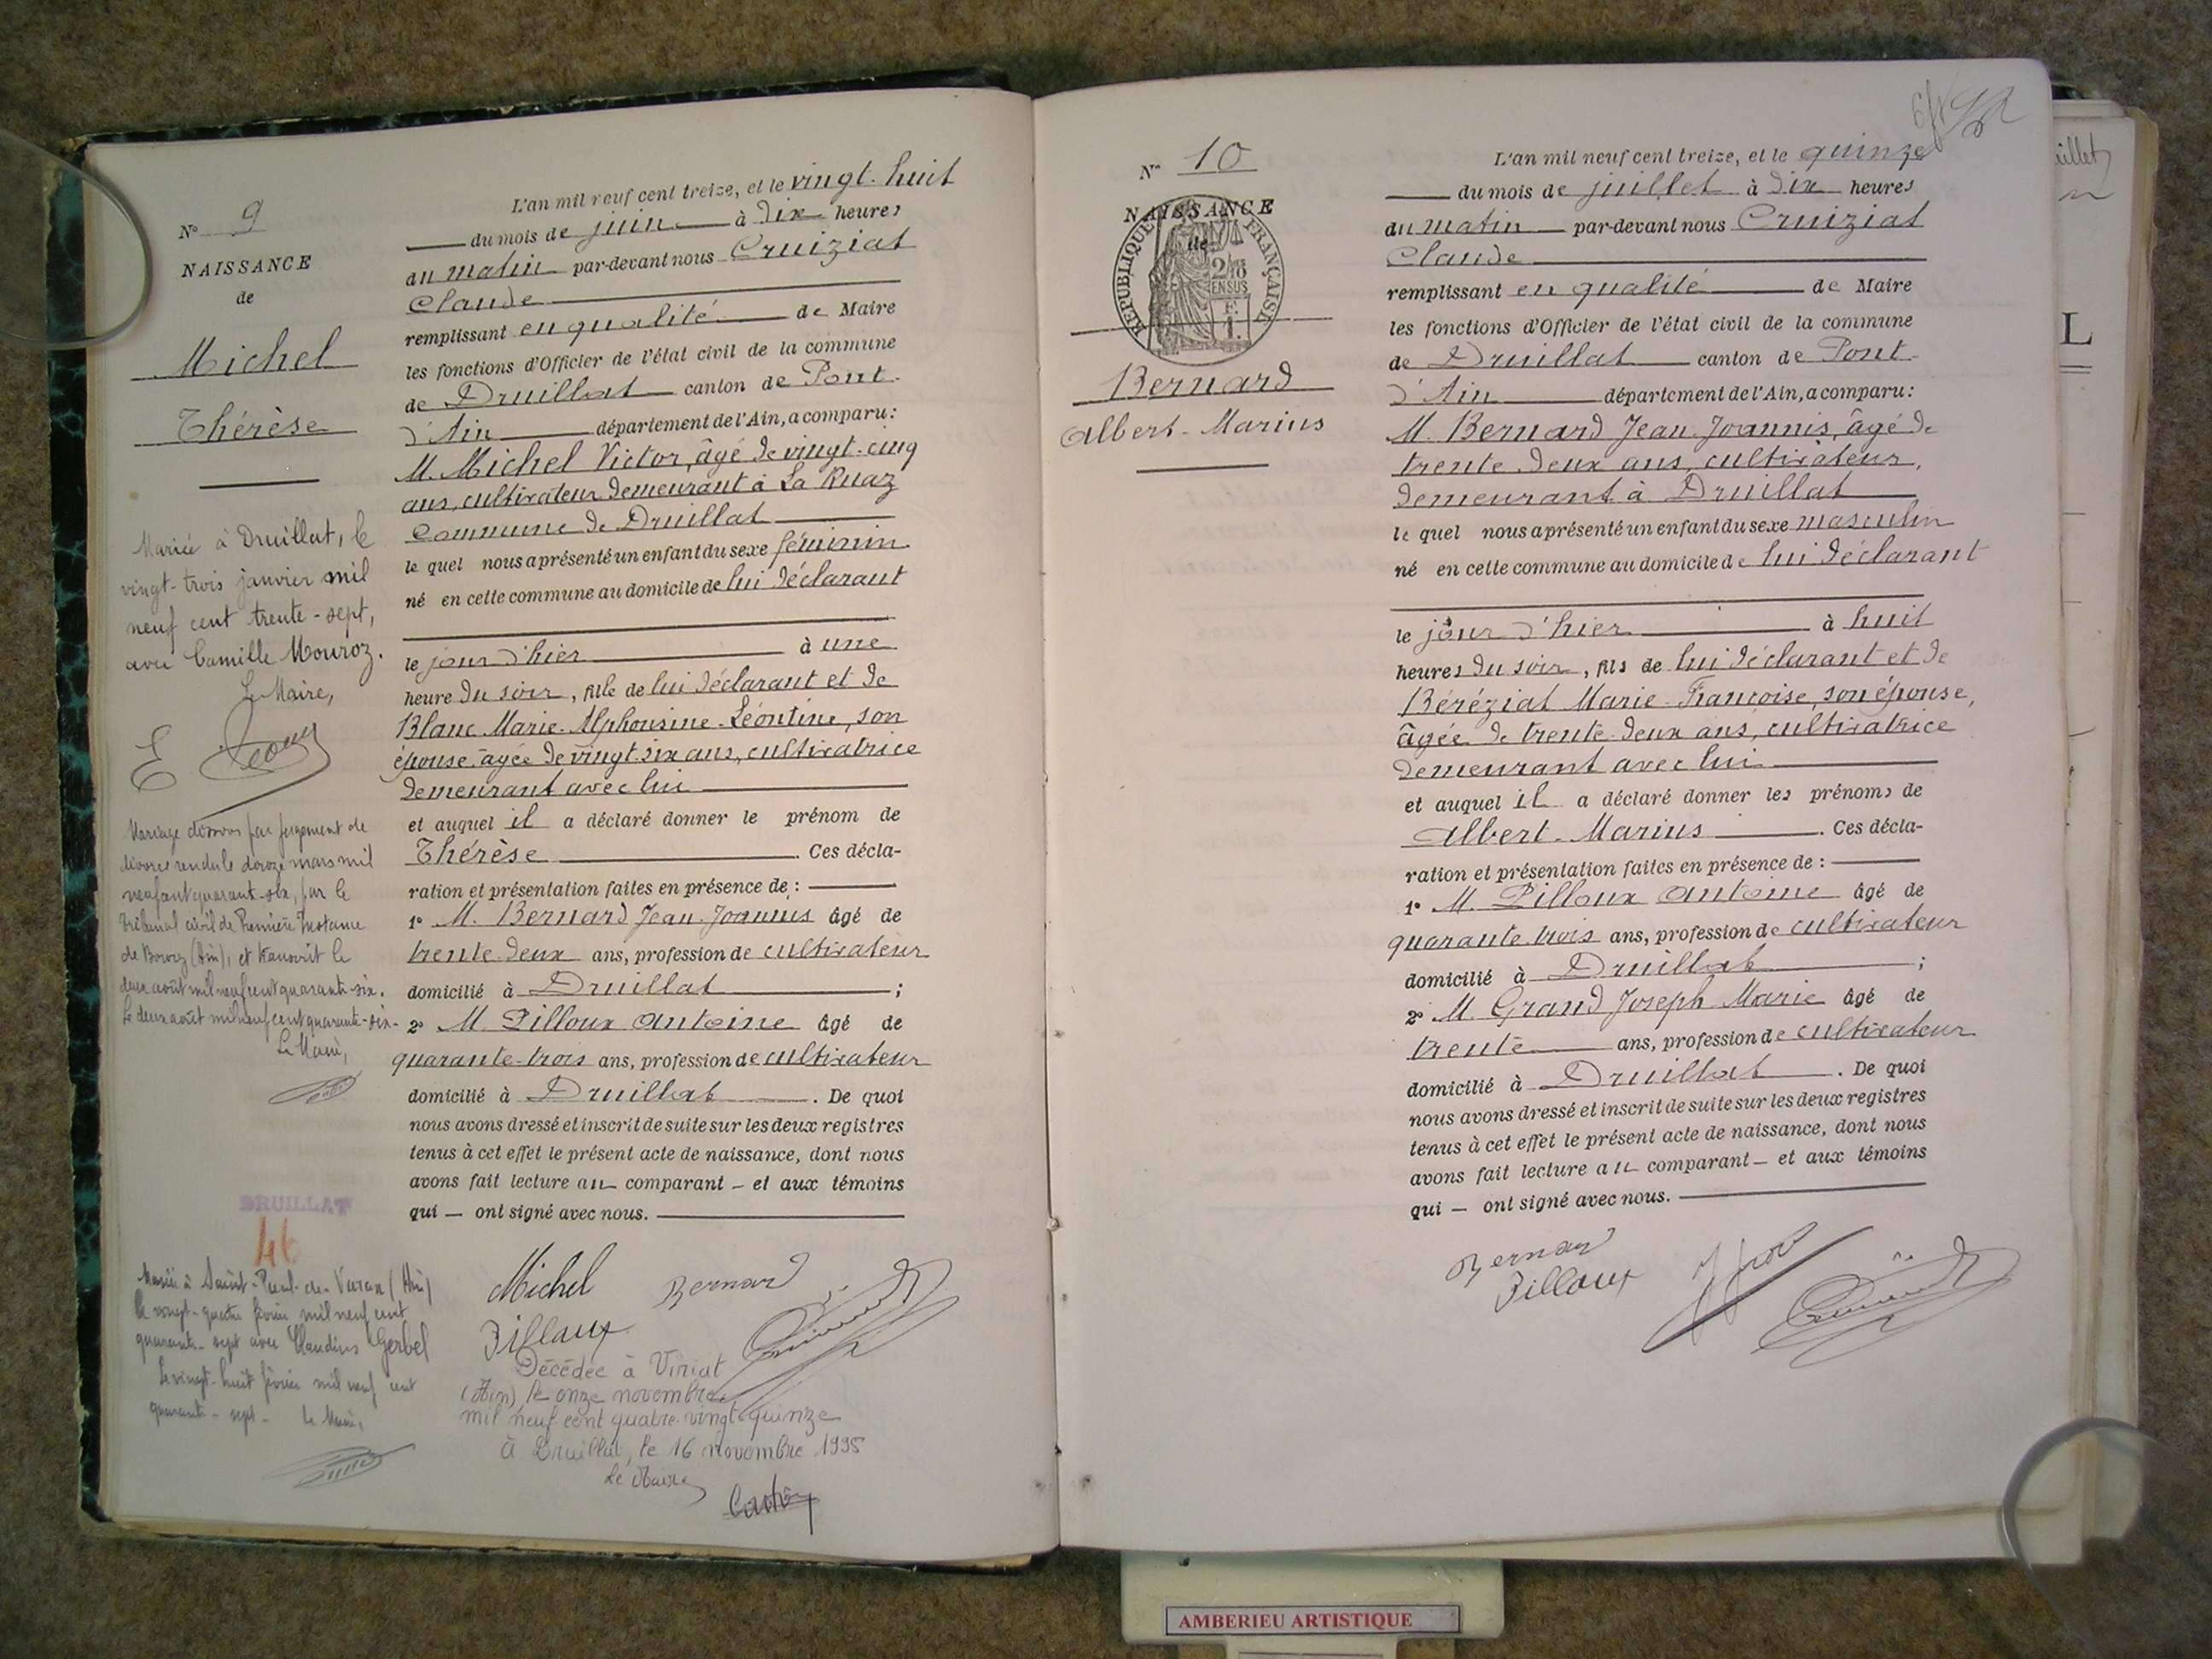 N° 9
NAISSANCE
de
Michel
Thérèse
Mariée à Druillat, le
vingt-trois janvier mil
neuf cent trente-sept,
avec Camille Mouroz.
Le Maire,
Mariage dissous par jugement de
divorce rendu le douze mars mil
neuf cent quarante-six, par le
Tribunal civil de Première Instance
de Bourg (Ain), et transcrit le
deux août mil neuf cent quarante-six.
Le deux août mil neuf cent quarante-six-
Le Maire,
DRUILLAT
46
Mariée à Saint-Paul-de-Varax (Ain)
le vingt-quatre février mil neuf cent
quarante-sept avec Claudius Gerbel
Le vingt-huit février mil neuf cent
quarante-sept- Le Maire,
L'an mil neuf cent treize, et le vingt-huit
du mois de juin à dix heures
du matin par-devant nous Cruiziat
Claude
remplissant en qualité de Maire
les fonctions d'Officier de l'état civil de la commune
de Druillat canton de Pont-
d'Ain département de l'Ain, a comparu:
M. Michel Victor, âgé de vingt-cinq
ans, cultivateur demeurant à La Ruaz
Commune de Druillat
le quel nous a présenté un enfant du sexe féminin
né en cette commune au domicile de lui déclarant
le jour d'hier à une
heure du soir, fille de lui déclarant et de
Blanc Marie-Alphonsine-Léontine, son
épouse, âgée de vingt-six ans, cultivatrice
demeurant avec lui
et auquel il a déclaré donner le prénom de
Thérèse. Ces décla-
ration et présentation faites en présence de :
1° M. Bernard Jean-Joannis âgé de
trente-deux ans, profession de cultivateur
domicilié à Druillat ;
2° M. Pilloux Antoine âgé de
quarante-trois ans, profession de cultivateur
domicilié à Druillat. De quoi
nous avons dressé et inscrit de suite sur les deux registres
tenus à cet effet le présent acte de naissance, dont nous
avons fait lecture au comparant - et aux témoins
qui - ont signé avec nous.
Michel Bernard
Pilloux
Décédée à Viriat
(Ain) le onze novembre
mil neuf cent quatre-vingt-quinze
à Druillat, le 16 novembre 1995
Le Maire
N° 10
NAISSANCE
de
REPUBLIQUE FRANÇAISE
2/10
EN SUS
F.
1.
Bernard
Albert-Marius
L'an mil neuf cent treize, et le quinze
du mois de juillet à dix heures
du matin par-devant nous Cruiziat
Claude
remplissant en qualité de Maire
les fonctions d'Officier de l'état civil de la commune
de Druillat canton de Pont-
d'Ain département de l'Ain, a comparu:
M. Bernard Jean-Joannis, âgé de
trente-deux ans, cultivateur,
demeurant à Druillat
le quel nous a présenté un enfant du sexe masculin
né en cette commune au domicile de lui déclarant
le jour d'hier à huit
heures du soir, fils de lui déclarant et de
Béréziat Marie-Françoise, son épouse,
âgée de trente-deux ans, cultivatrice
demeurant avec lui
et auquel il a déclaré donner les prénoms de
Albert-Marius. Ces décla-
ration et présentation faites en présence de :
1° M. Pilloux Antoine âgé de
quarante-trois ans, profession de cultivateur
domicilié à Druillat ;
2° M. Grand Joseph Marie âgé de
trente ans, profession de cultivateur
domicilié à Druillat. De quoi
nous avons dressé et inscrit de suite sur les deux registres
tenus à cet effet le présent acte de naissance, dont nous
avons fait lecture au comparant - et aux témoins
qui - ont signé avec nous.
Bernard
Pilloux
L
AMBERIEU ARTISTIQUE